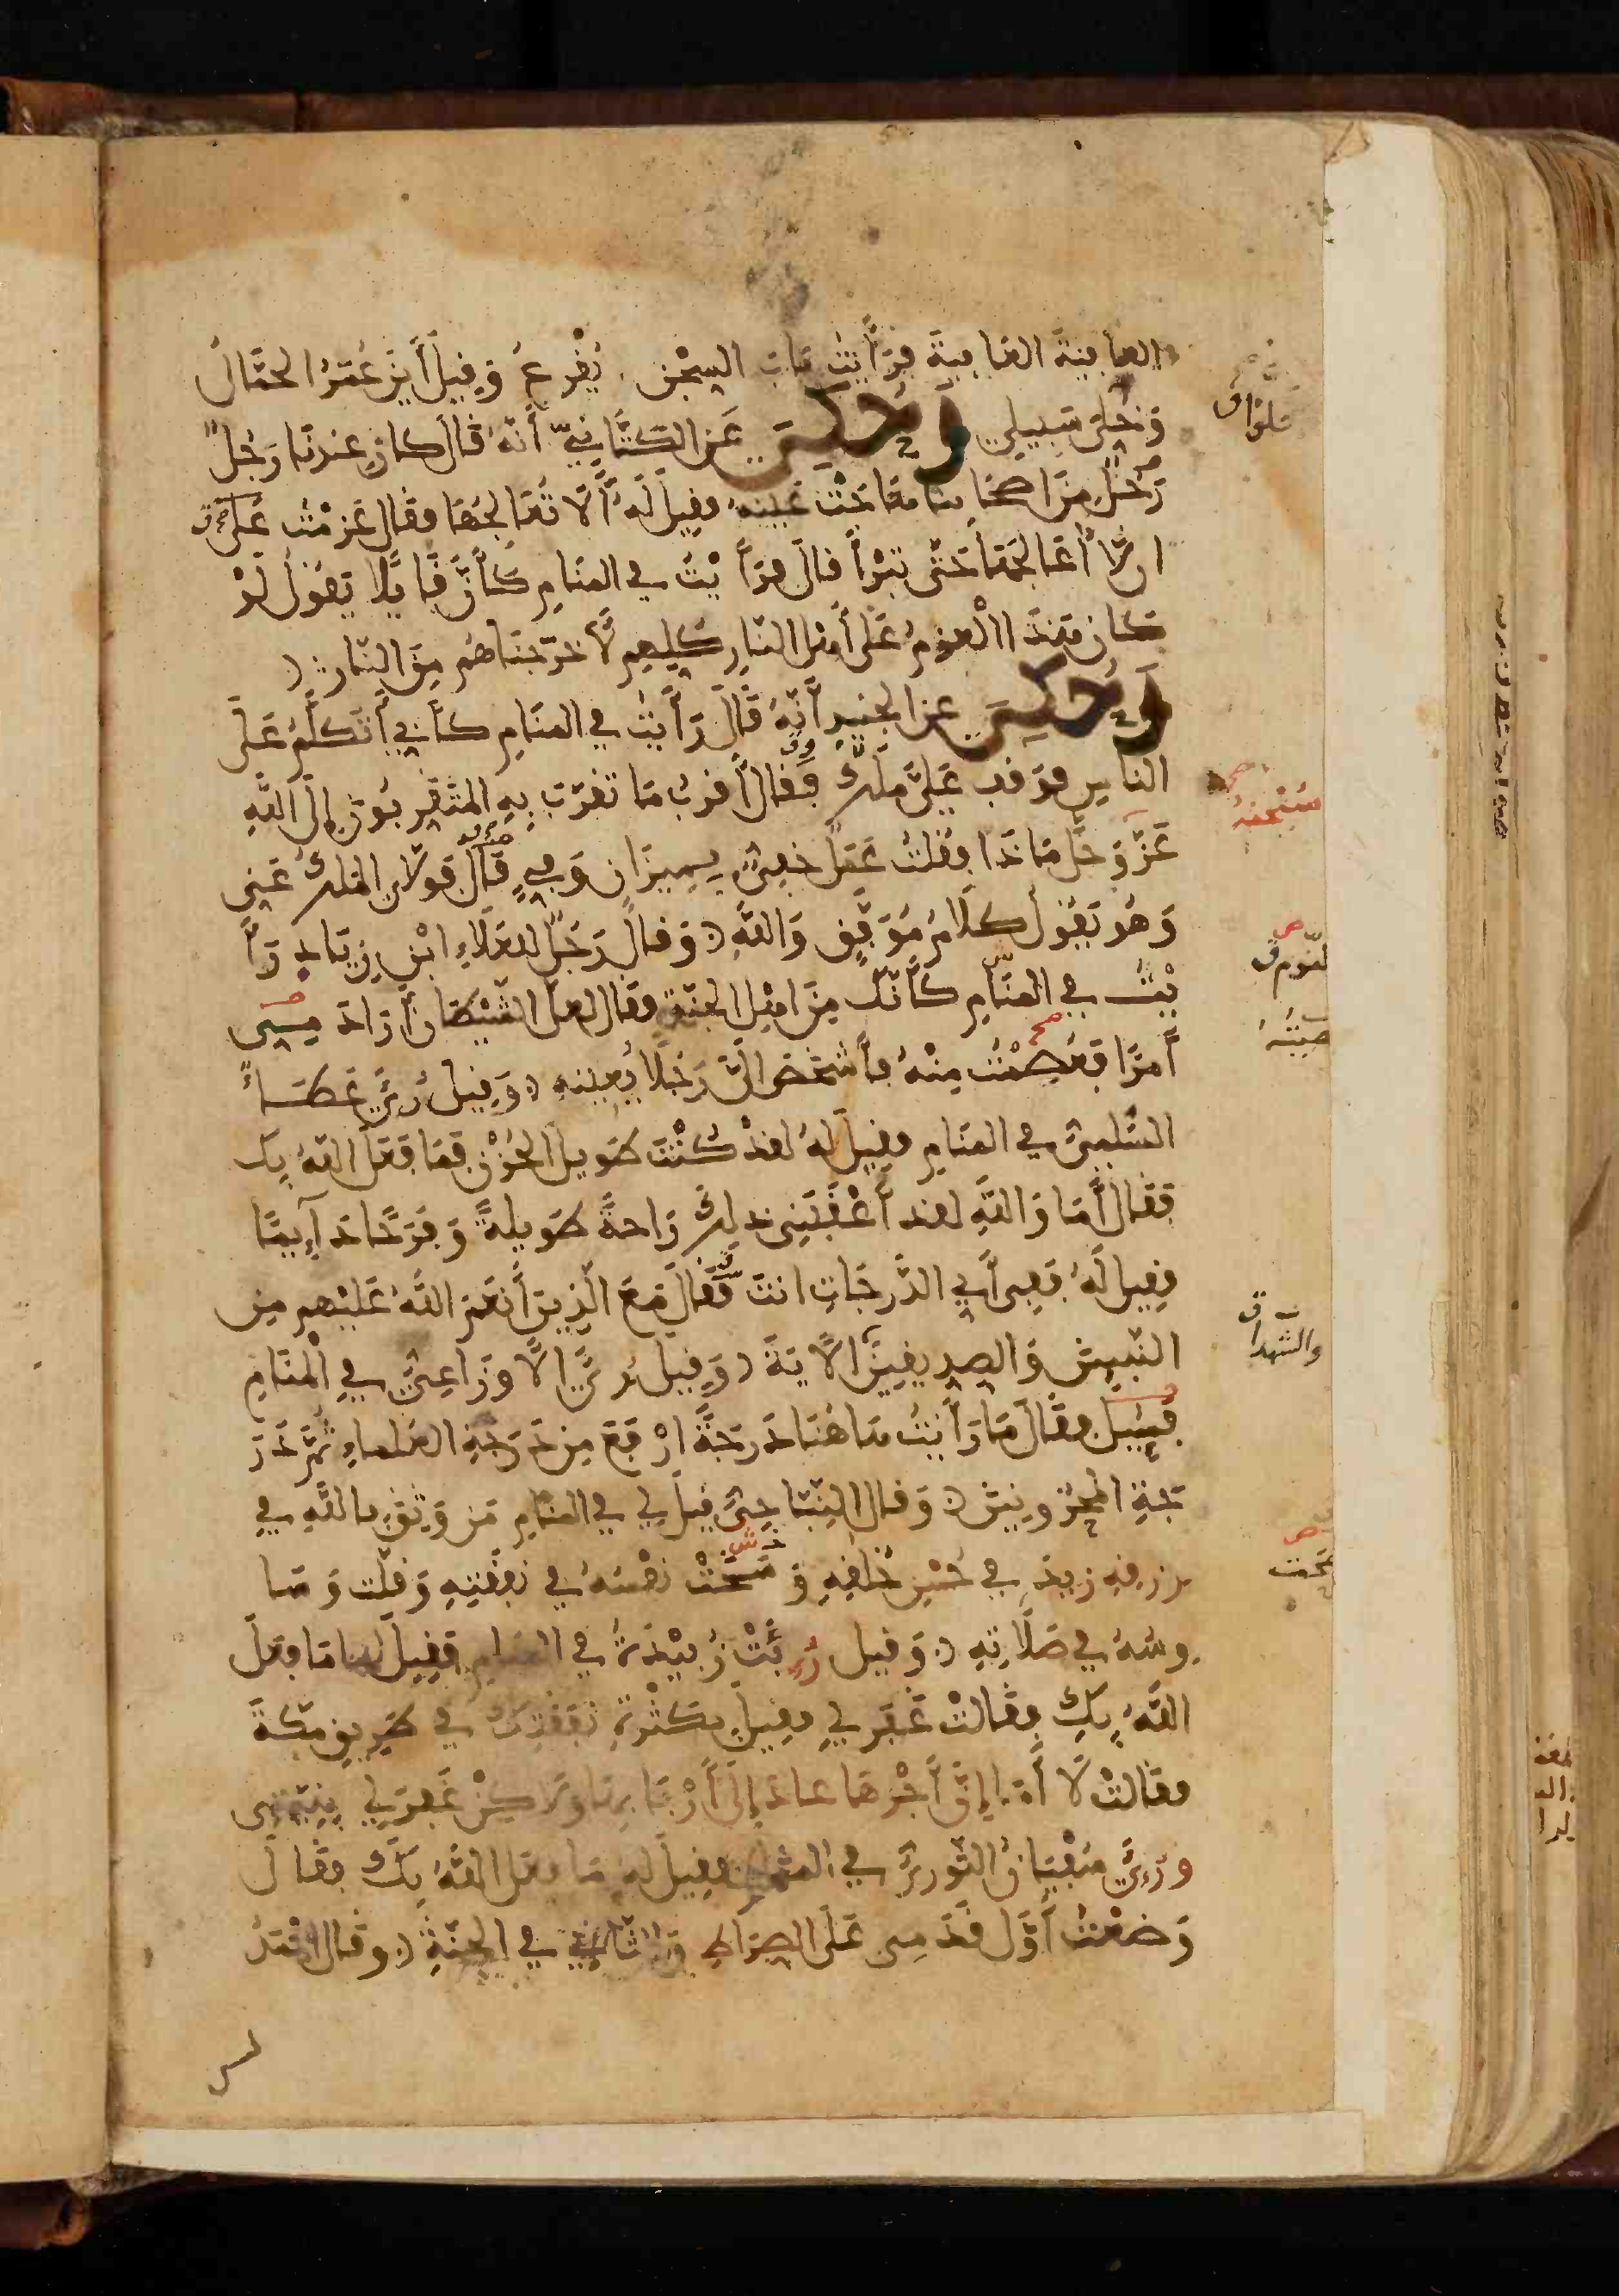 العافية العافية فرأيت باب السجن يقرع وقيل أين عمر الحمال
وخلى سبيلي وحكي عن الكتاني أنه قال كان عندنا رجل
رجل من أصحابنا هاجت عينه فقيل له ألا تعالجها فقال عزمت على
ان لا أعالجها حتى تبرأ قال فرأيت في المنام كأن قايلا يقول لو
كان هذا العزم على أهل النار كلهم لأخرجناهم من النار
وحكي عن الجنيد أنه قال رأيت في المنام كأني أتكلم على
الناس فوقف علي ملك فقال أقرب ما تقرب به المتقربون إلى الله
عز وجل ماذا فقلت عمل خفي بميزان وفي قال فولى الملك عني
وهو يقول كلام موفق والله وقال رجل للعلاء ابن زياد رأ
يت في المنام كأنك من اهل الجنة فقال لعل الشيطان أراد مني
أمرا فعصمت منه فأشخص الي رجلا يعينه وقيل رئي عطاء
السلمي في المنام فقيل له لقد كنت طويل الحزن فما فعل الله بك
فقال أما والله لقد أعقبني ذلك راحة طويلة وفرحا دآيما
فقيل له ففي أي الدرجات انت فقال مع الذين أنعم الله عليهم من
النبيين والصديقين الآية وقيل رئي الأوزاعي في المنام
فسيل فقال ما رأيت هاهنا درجة ارفع من درجة العلماء ثم در
جة المحزونين وقال النباجي قيل لي في المنام من وثق بالله في
رزقه زيد في حسن خلقه وسمحت نفسه في نفقته وقلت وسا
وسه في صلاته وقيل رئت زبيدة في المنام فقيل لها ما فعل
الله بك فقالت غفر لي فقيل بكثرة نفقتك في طريق مكة
فقالت لا أما إن أجرها عاد إلى أربابها ولكن غفر لي بنيتي
ورئي سفيان الثوري في المنام فقيل له ما فعل الله بك فقال
وضعت أول قدمي على الصراط والثاني في الجنة وقال أحمد
النوم ق
والشهدا ق